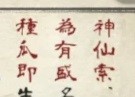 神仙索、
為有盛名
種瓜即生